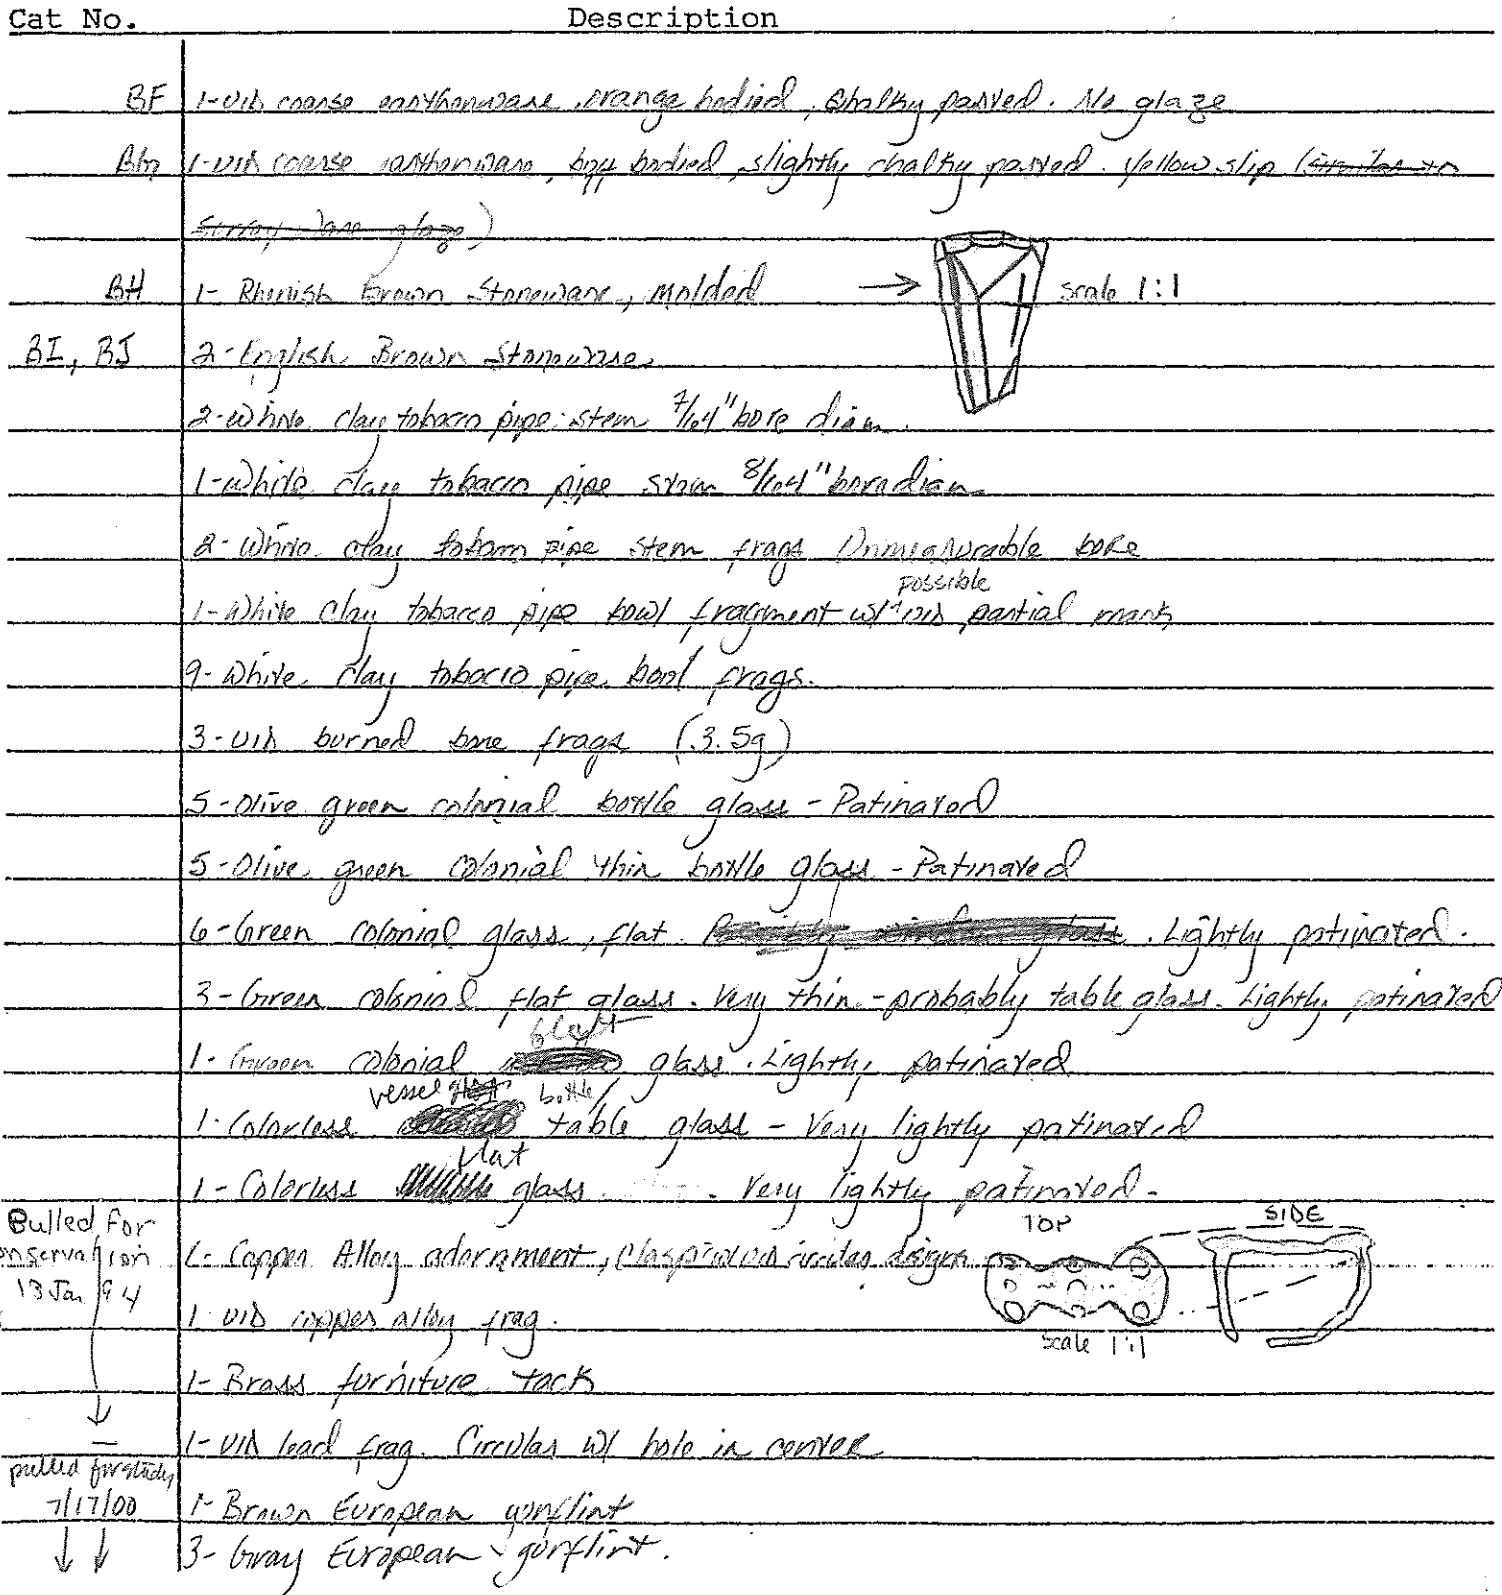 Cat No. Description
BF 1-UID coarse earthenware, orange bodied, chalky pasted. No glaze
BG 1-UID coarse earthenware, buff bodied, slightly chalky pasted. Yellow slip (similar to
Surrey ware glaze)
BH 1- Rhenish Brown Stoneware, molded → scale 1:1
BI, BJ 2-English Brown Stoneware
2-White clay tobacco pipe stem 7/64" bore diam.
1-White clay tobacco pipe stem 8/64" bore diam.
2-White clay tobacco pipe stem frags Unmeasurable bore
possible
1-White clay tobacco pipe bowl fragment w/ UID partial mark
9-White clay tobacco pipe bowl frags.
3-UID burned bone frags (3.5g)
5-Olive green colonial bottle glass - Patinated
5-Olive green colonial thin bottle glass - Patinated
6-Green colonial glass, flat. Lightly patinated.
3-Green colonial flat glass. Very thin - probably table glass. Lightly patinated
1-Green colonial glass. Lightly patinated
vessel bottle/
1-Colorless table glass - Very lightly patinated
flat
1-Colorless glass. Very lightly patinated.
Pulled for
conservation
13 Jan 94
1-Copper Alloy adornment, clasp w/ UID circular design
TOP SIDE
scale 1:1
1-UID copper alloy frag.
1-Brass furniture tack
1-UID lead frag. Circular w/ hole in center
pulled for study
7/17/00
1-Brown European gunflint
3-Gray European gunflint.